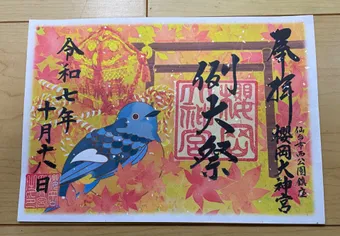 奉拝
仙台市西公園鎮座
櫻岡大神宮
例大祭
櫻岡
大神宮
令和七年
十月十八日